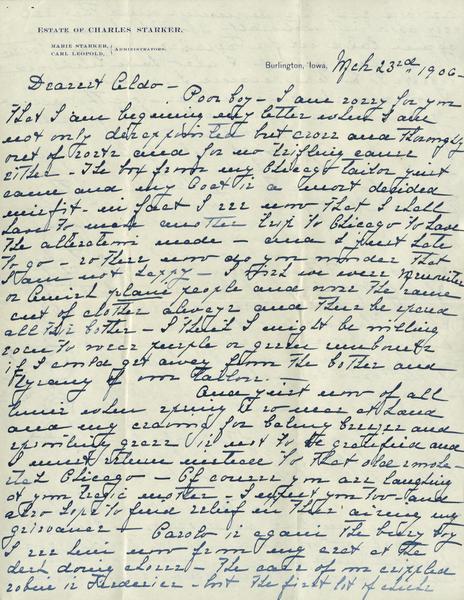 ESTATE OF CHARLES STARKER.
MARIE STARKER,
CARL LEOPOLD, } ADMINISTRATORS.
Burlington, Iowa, Mch 23rd 1906-
Dearest Aldo-
Poor boy- I am sorry for you
that I am beginning my letter when I am
not only disappointed but cross and thoroughly
out of sorts and for no trifling cause
either- The box from my Chicago tailor just
came and my Coat is a most decided
misfit- in fact I see now that I shall
have to make another trip to Chicago to have
the alterations made - and I just hate
to go- so there now do you wonder that
I am not happy- I wish we were
or Amish plain people and wore the same
cut of clothes always and thus be spared
all this bother- I think I might be willing
soon to wear purple or green
if I could get away from the bother and
tyrany of one tailor. -
And just now of all
times when spring is so near at hand
and my craving for balmy breezes and
sprouting grass is not to be gratified and
I must return instead to that
Chicago - Of course you are laughing
at your tragic mother- I expect you too- and
also hope to find relief in thus airing my
grievance- Carolo is again the busy boy
I see him now from my seat at the
desk doing chores- The care of our crippled
robin is Frederics- but the first lot of